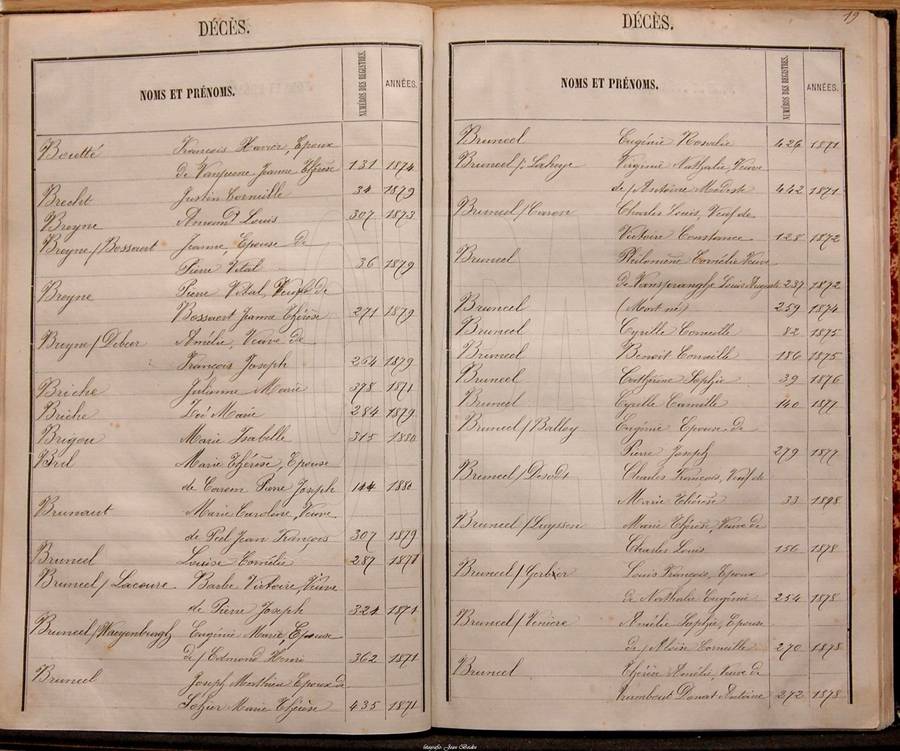 DÉCÈS.
NOMS ET PRÉNOMS. NUMÉROS DES REGISTRES. ANNÉES.
Boutté François Xavier, Epoux
de Jeanne Thérèse 131 1874
Brecht Justin Corneille 34 1879
Breyne Amand Louis 307 1873
Breyne/Bossaert Jeanne, Epouse de
Pierre Vital 36 1879
Breyne Pierre Vital, Veuf de
Bossaert Jeanne Thérèse 271 1879
Breyne/Debeer Amélie, Veuve de
François Joseph 264 1879
Briche Julienne Marie 398 1871
Briche Zoé Marie 284 1879
Brigou Marie Isabelle 315 1880
Bril Marie Thérèse, Epouse
de Carem Pierre Joseph 144 1880
Brunaut Marie Caroline, Veuve
de Peel Jean François 307 1879
Bruneel Louise Cornélie 287 1871
Bruneel/Lacoure Barbe Victoire, Veuve
de Pierre Joseph 321 1871
Bruneel/Waeyenburgh Eugénie Marie, Epouse
de/Edmond Henri 362 1871
Bruneel Joseph Mathieu Epoux de
Sohier Marie Thérèse 435 1871
DÉCÈS. 19
NOMS ET PRÉNOMS. NUMÉROS DES REGISTRES. ANNÉES.
Bruneel Eugénie Rosalie 426 1871
Bruneel/Lahaye Virginie Nathalie, Veuve
de/Antoine Modeste 442 1871
Bruneel/Caron Charles Louis, Veuf de
Victoire Constance 128 1872
Bruneel Philomène Cornélie Veuve
de Louis Auguste 237 1872
Bruneel (Mort né) 259 1874
Bruneel Cyrille Corneille 82 1875
Bruneel Benoit Corneille 186 1875
Bruneel Cathérine Sophie 39 1876
Bruneel Cyrille Camille 140 1877
Bruneel/Balloy Eugénie Epouse de
Pierre Joseph 279 1877
Bruneel/Desodt Charles François, Veuf de
Marie Thérèse 33 1878
Bruneel/Luyssen Marie Thérèse, Veuve de
Charles Louis 156 1878
Bruneel/ Louis François, Epoux
de Nathalie Eugénie 254 1878
Bruneel/Venière Amélie Sophie, Epouse
de/Aloïs Corneille 270 1878
Bruneel Thérèse Amélie, Veuve de
Donat Antoine 272 1878
fotografie Jean Boeke